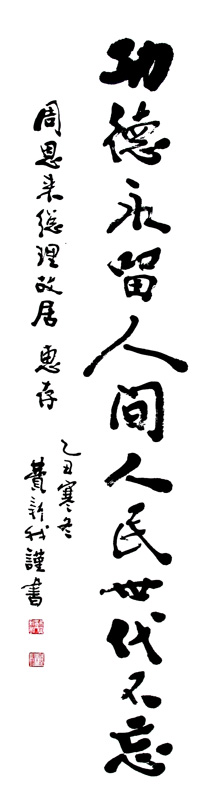 功德永留人间人民世代不忘
周恩来总理故居 惠存
乙丑寒冬
费新我谨书